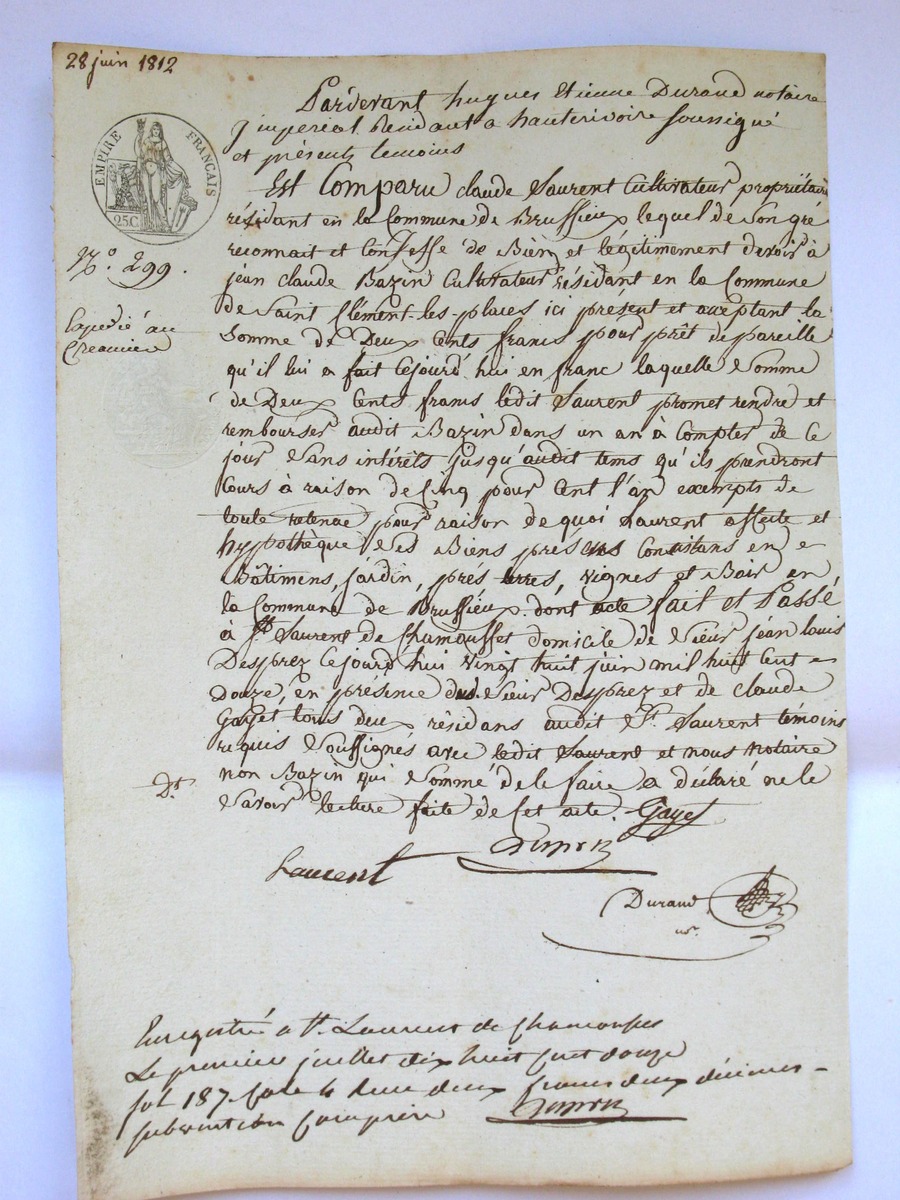 28 juin 1812
Pardevant hugues Etienne Durand notaire
impérial Résidant a hauterivoire soussigné
et présents temoins
EMPIRE FRANÇAIS
25C
Est Comparu claude Laurent Cultivateur propriétaire
résidant en la Commune de Brussieux lequel de son gré
reconnait et Confesse de Bien et légitimement devoir à
N.o 299.
jean claude Bazin Cultivateur résidant en la Commune
de Saint Clément-les-places ici présent et acceptant la
Expedié au
Créancier
Somme de Deux Cents francs pour prêt de pareille
qu'il lui a fait Cejourd'hui en franc laquelle Somme
de Deux Cents francs ledit Laurent promet rendre et
rembourser audit Bazin dans un an à Compter de Ce
jour Sans intérêts jusqu'audit tems qu'ils prendront
Cours à raison de Cinq pour Cent l'an exempts de
toute retenue pour raison de quoi Laurent affecte et
hypothèque Ses Biens présens Consistans en
Bâtimens, jardin, prés terres, vignes et Bois en
la Commune de Brussieux. dont acte fait et Passé
à St Laurent de Chamousset domicile de Sieur jean louis
Desprez Cejourd'hui vingt huit juin mil huit Cent
Douze, en présence dud. Sieur Desprez et de claude
Gayet tous deux résidans audit St. Laurent témoins
requis Soussignés avec ledit Laurent et nous notaire
non Bazin qui Sommé de le faire a déclaré ne le
Dt.
Savoir lecture faite de Cet acte. Gayet
Laurent
Durand
nre.
Enregistré a St. Laurent de Chamousset
Le premier juillet dix huit cent douze
fol 187 Case 4 deux francs deux décimes
subvention comprise